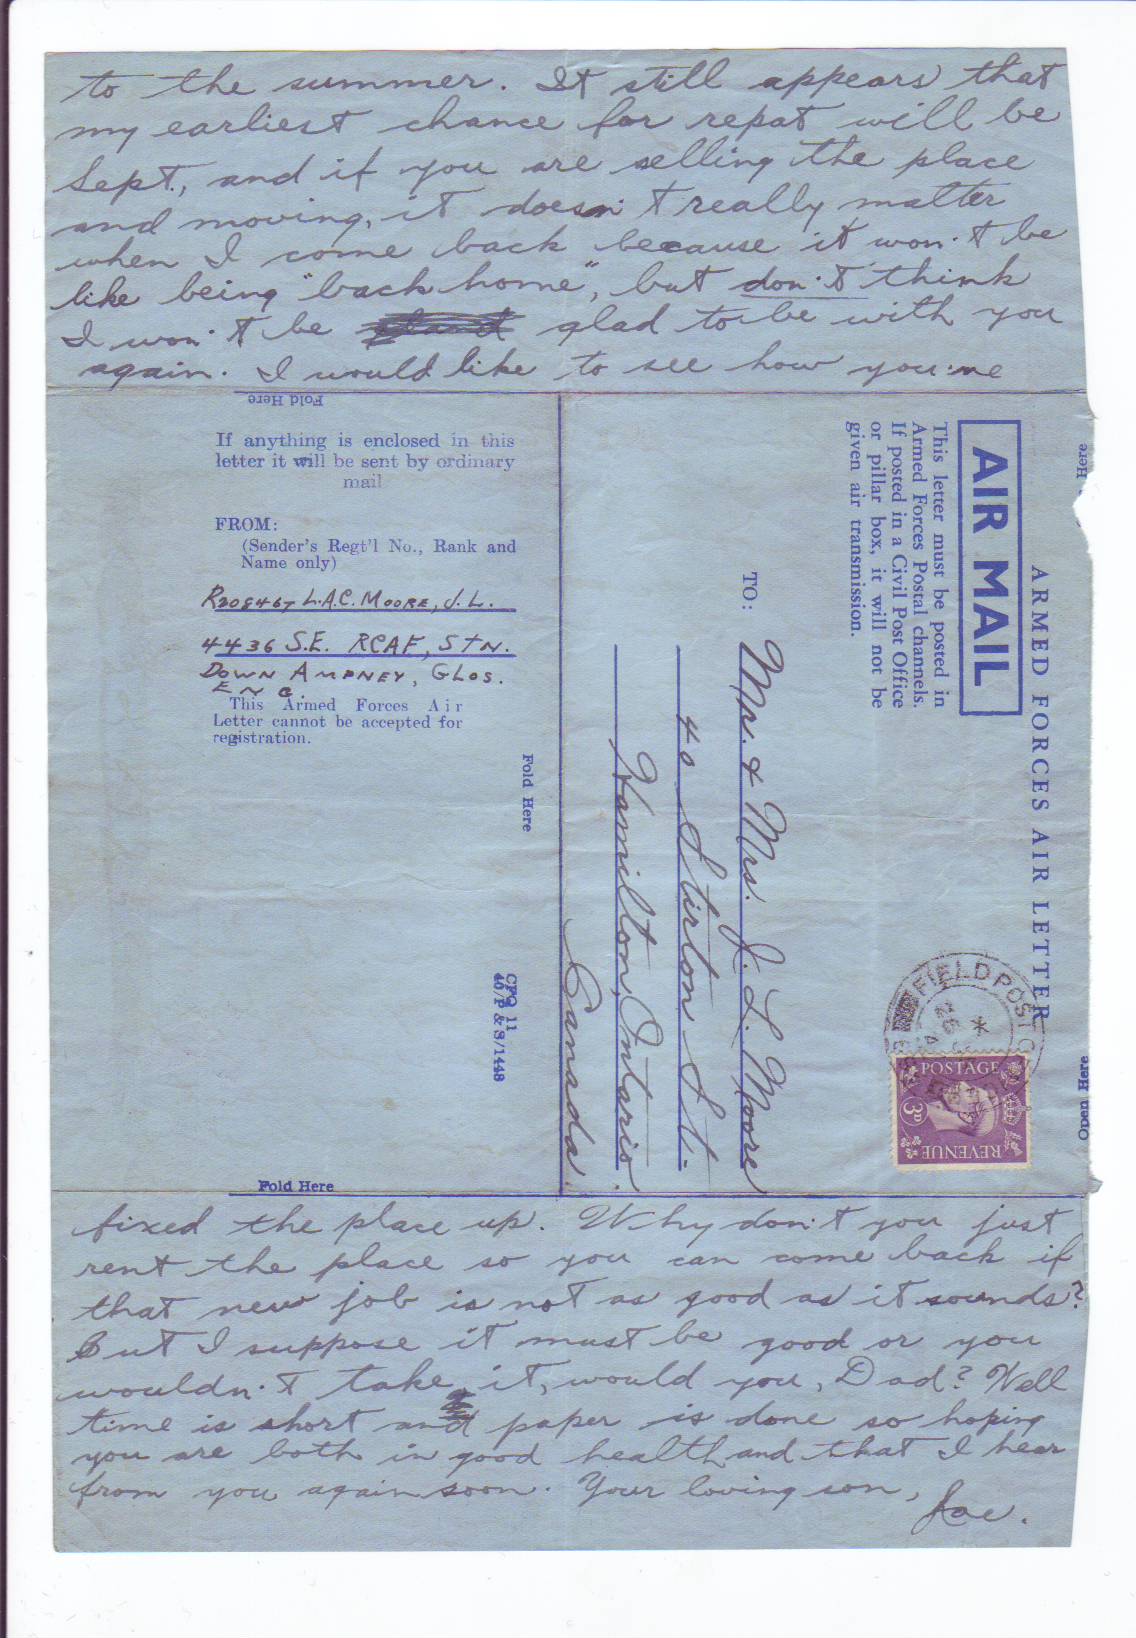 to the summer. It still appears that
my earliest chance for repat will be
Sept., and if you are selling the place
and moving, it doesn't really matter
when I come back because it won't be
like being "back home", but don't think
I won't be glad to be with you
again. I would like to see how you've
Fold Here
If anything is enclosed in this
letter it will be sent by ordinary
mail
FROM:
(Sender's Regt'l No., Rank and
Name only)
R208467 L.A.C. MOORE, J. L.
4436 S.E. RCAF, STN.
DOWN AMPNEY, GLOS.
ENG.
This Armed Forces Air
Letter cannot be accepted for
registration.
Fold Here
CFQ 11
40/P & S/1448
Fold Here
ARMED FORCES AIR LETTER
AIR MAIL
This letter must be posted in
Armed Forces Postal channels.
If posted in a Civil Post Office
or pillar box, it will not be
given air transmission.
TO:
Mr. & Mrs. J. L. Moore
40 Stirton St.
Hamilton, Ontario.
Canada.
Here
Open Here
FIELD POST
POSTAGE
3D
REVENUE
fixed the place up. Why don't you just
rent the place so you can come back if
that new job is not as good as it sounds?
But I suppose it must be good or you
wouldn't take it, would you, Dad? Well
time is short and paper is done so hoping
you are both in good health and that I hear
from you again soon. Your loving son,
Joe.